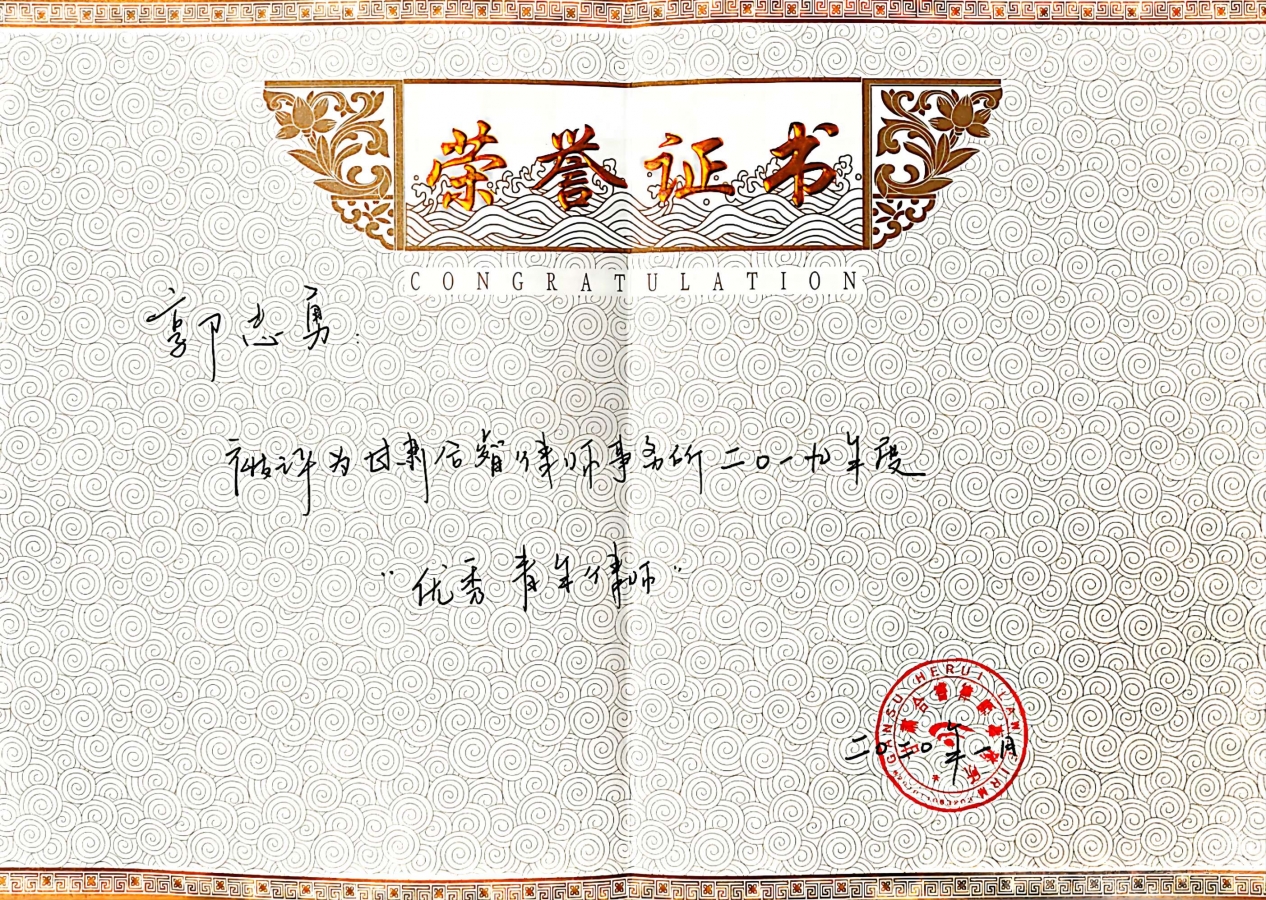 荣誉证书
CONGRATULATION
郭志勇：
被评为甘肃合睿律师事务所二〇一九年度
“优秀青年律师”
GANSU HERUI LAW FIRM
甘肃合睿律师事务所
二〇二〇年一月